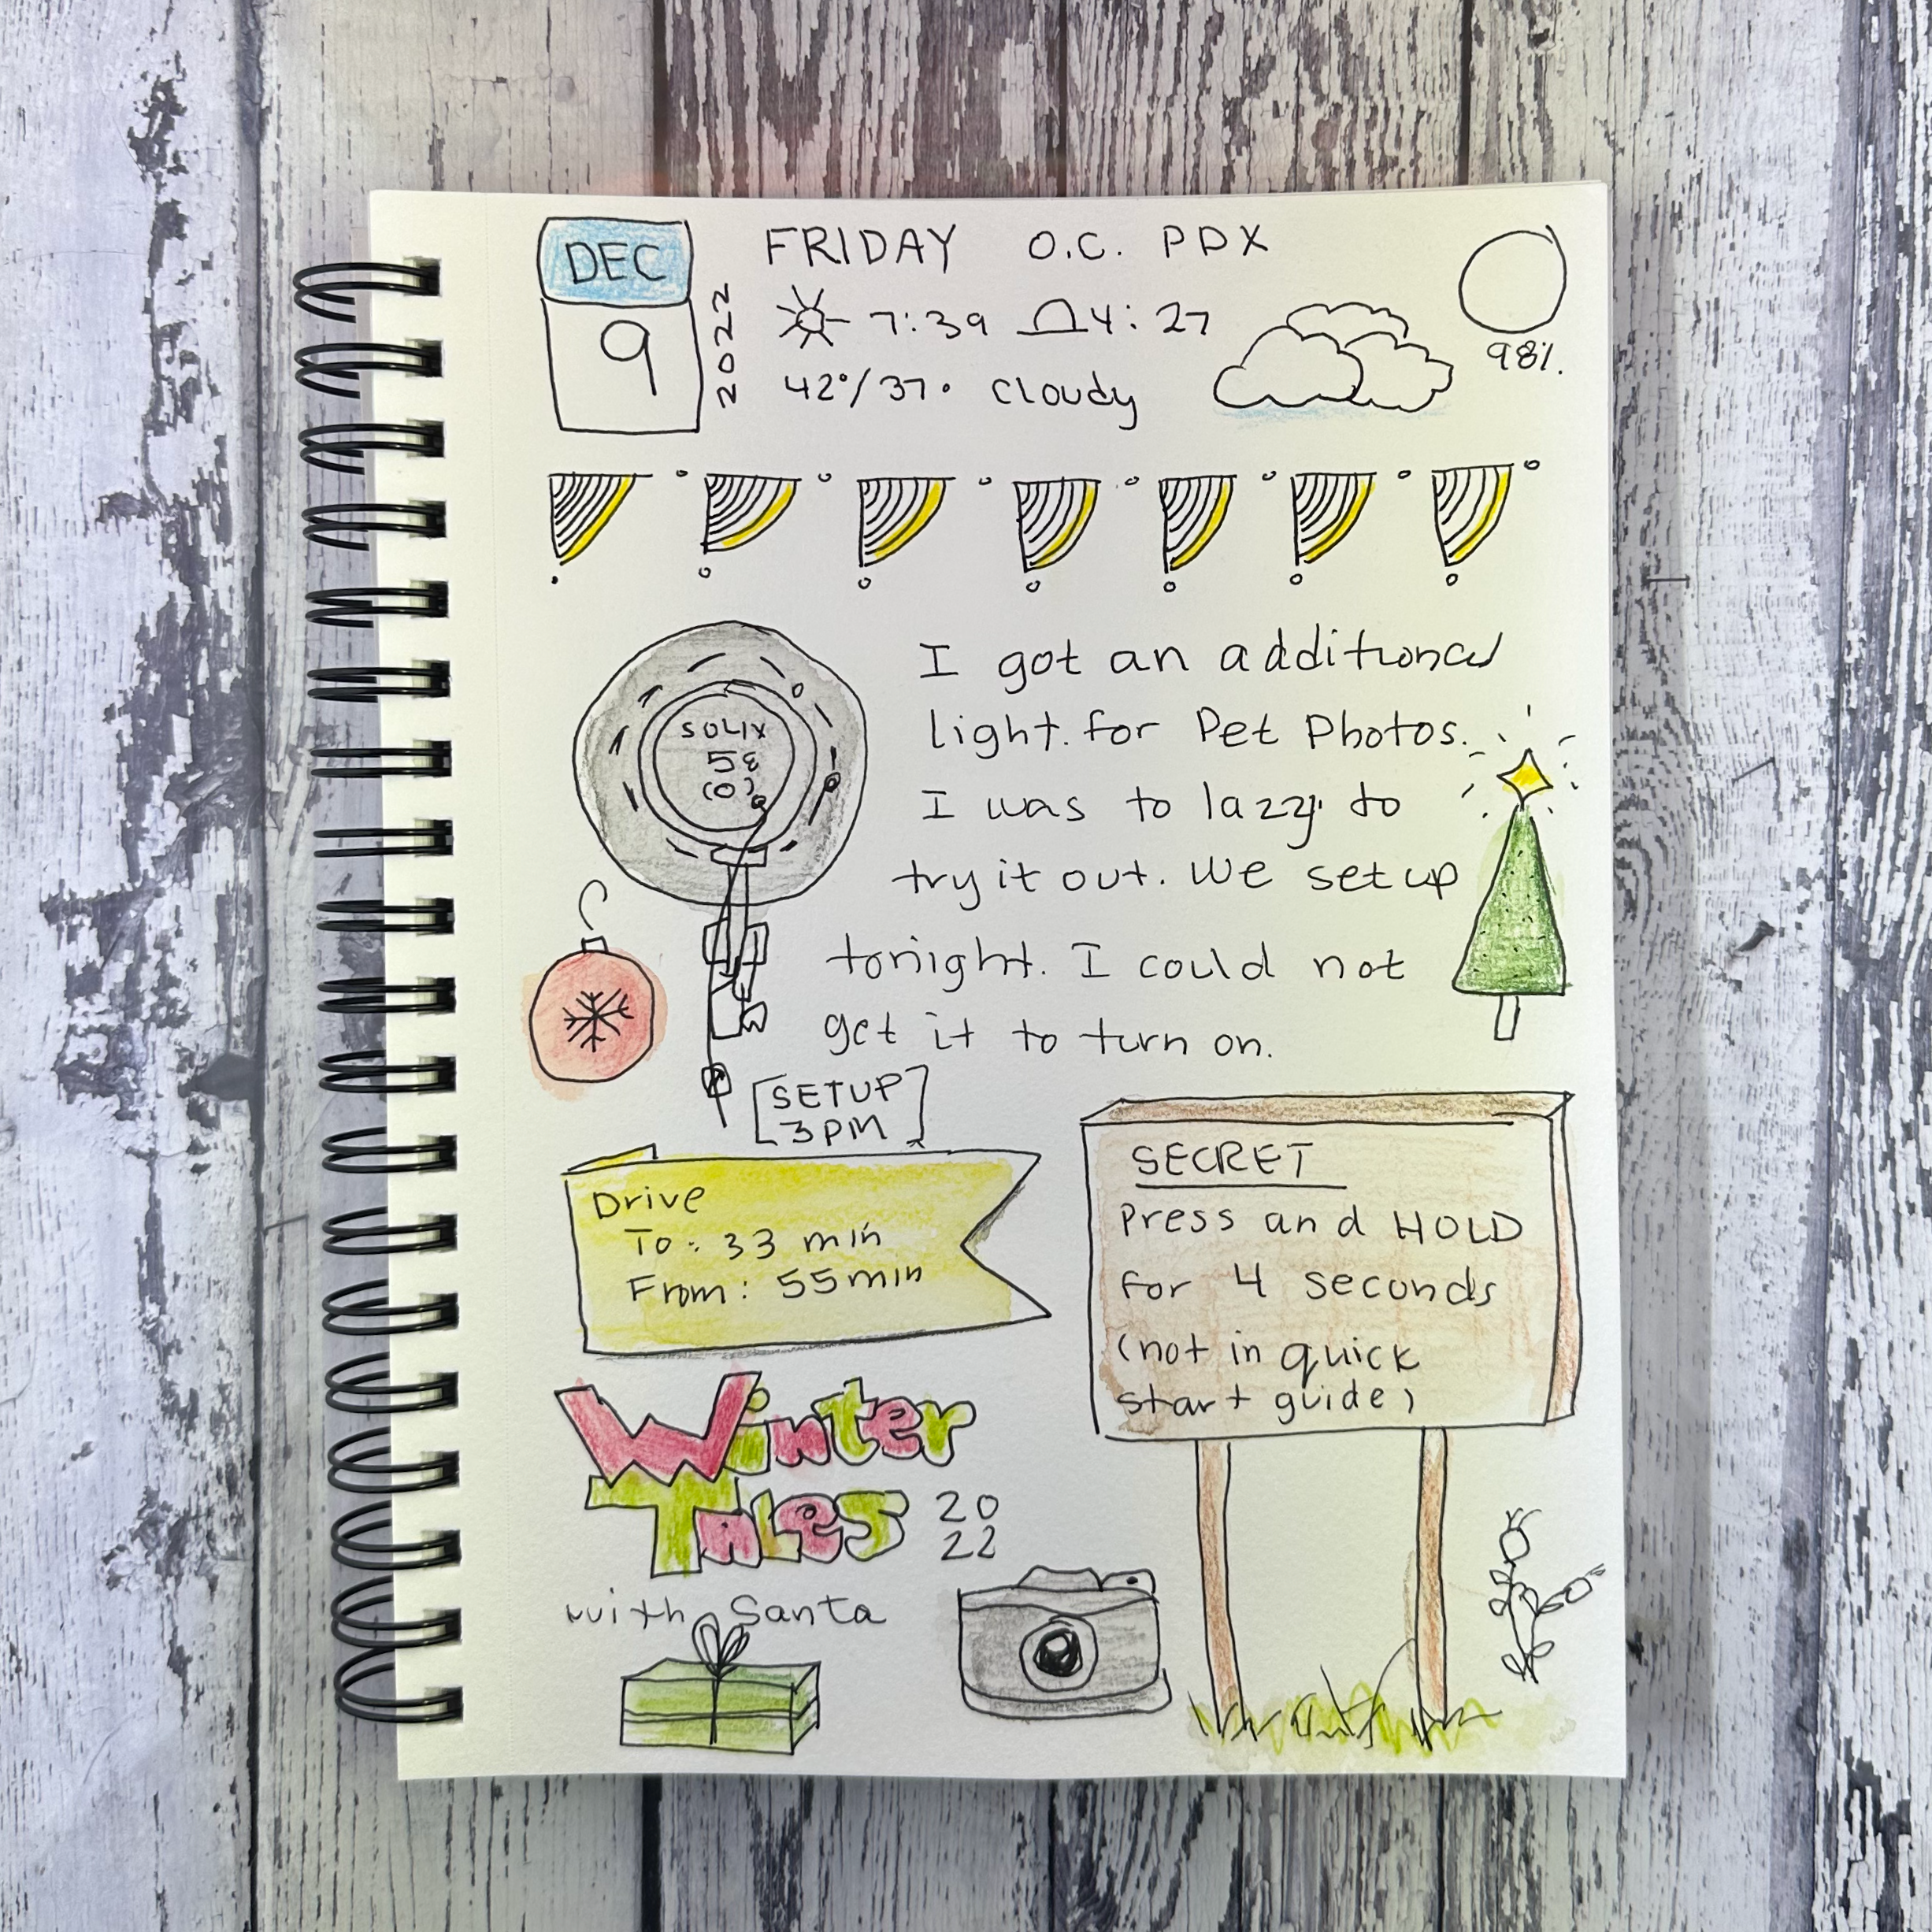 DEC
9
2022
FRIDAY O.C. PDX
7:39 4:27
42°/37° cloudy
98%.
SOLIX
(0)
I got an additional
light. for Pet Photos.
I was to lazy to
try it out. We set up
tonight. I could not
get it to turn on.
[SETUP
3PM]
Drive
To: 33 min
From: 55 min
SECRET
Press and HOLD
for 4 seconds
(not in quick
start guide)
Winter
Tales 20
22
with Santa